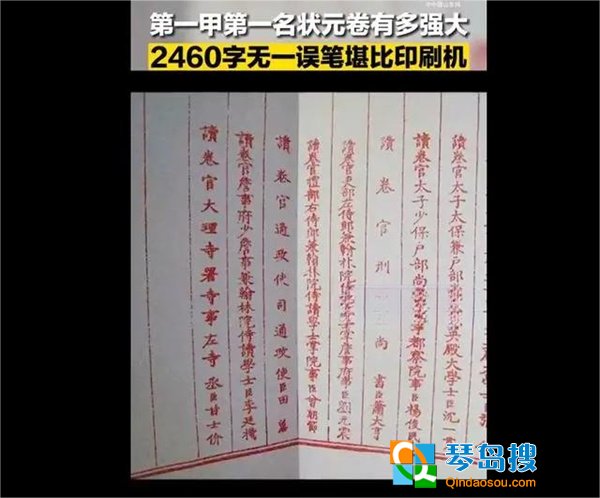 第一甲第一名状元卷有多强大
2460字无一误笔堪比印刷机
讀卷官太子太保兼戶部英殿大學士臣沈一
讀卷官太子少保戶部尚都察院事臣楊俊民
讀卷官刑尚書臣蕭大亨
讀卷官吏部左侍郎兼翰林院詹事府事臣劉元震
讀卷官禮部右侍郎兼翰林院侍讀學士掌院事臣曾朝節
讀卷官通政使司通政使臣田
讀卷官詹事府少詹事兼翰林院侍讀學士臣李廷機
讀卷官大理寺署寺事左寺丞臣甘士价
琴岛搜
Qindaosou.com